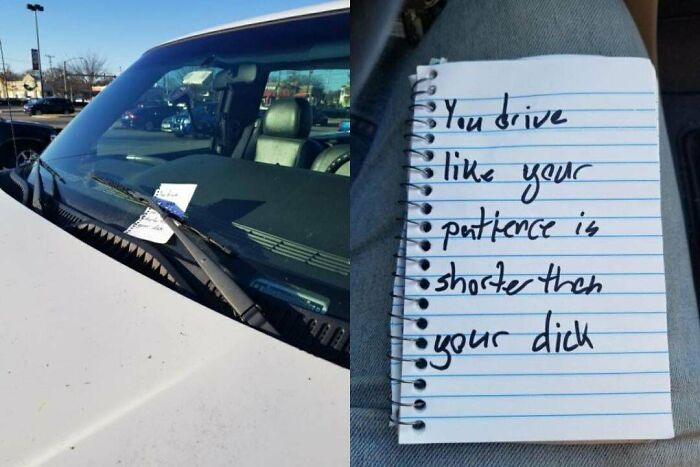 You drive
like your
patience is
shorter than
your dick